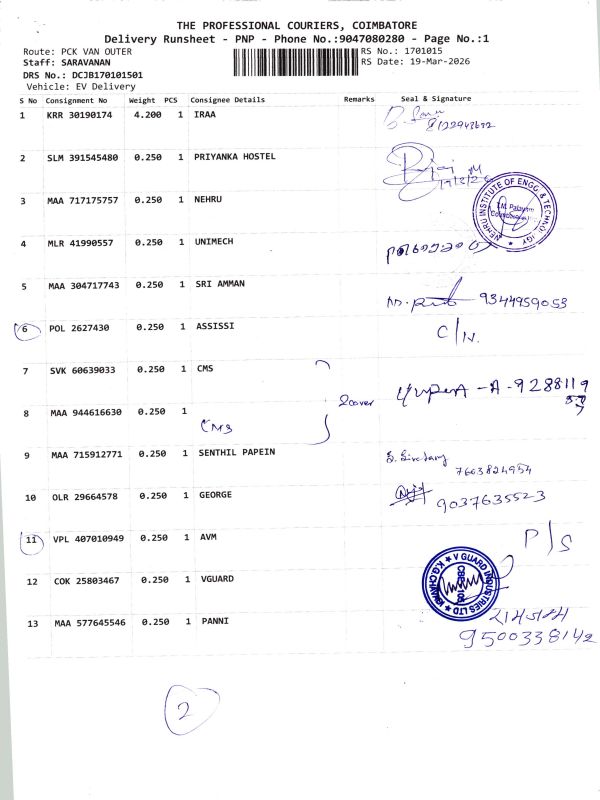 THE PROFESSIONAL COURIERS, COIMBATORE
Delivery Runsheet - PNP - Phone No.:9047080280 - Page No.:1
Route: PCK VAN OUTER
RS No.: 1701015
Staff: SARAVANAN
RS Date: 19-Mar-2026
DRS No.: DCJB170101501
Vehicle: EV Delivery
S No Consignment No Weight PCS Consignee Details Remarks Seal & Signature
1 KRR 30190174 4.200 1 IRAA
2 SLM 391545480 0.250 1 PRIYANKA HOSTEL
3 MAA 717175757 0.250 1 NEHRU
NEHRU INSTITUTE OF ENGG & TECHNOLOGY
4 MLR 41990557 0.250 1 UNIMECH
5 MAA 304717743 0.250 1 SRI AMMAN 9344959053
6 POL 2627430 0.250 1 ASSISSI C/N.
7 SVK 60639033 0.250 1 CMS
2cover
8 MAA 944616630 0.250 1 CMS
9 MAA 715912771 0.250 1 SENTHIL PAPEIN
7663824954
10 OLR 29664578 0.250 1 GEORGE 9037635523
11 VPL 407010949 0.250 1 AVM P/S
12 COK 25803467 0.250 1 VGUARD
V GUARD INDUSTRIES LTD
13 MAA 577645546 0.250 1 PANNI
9500338142
2